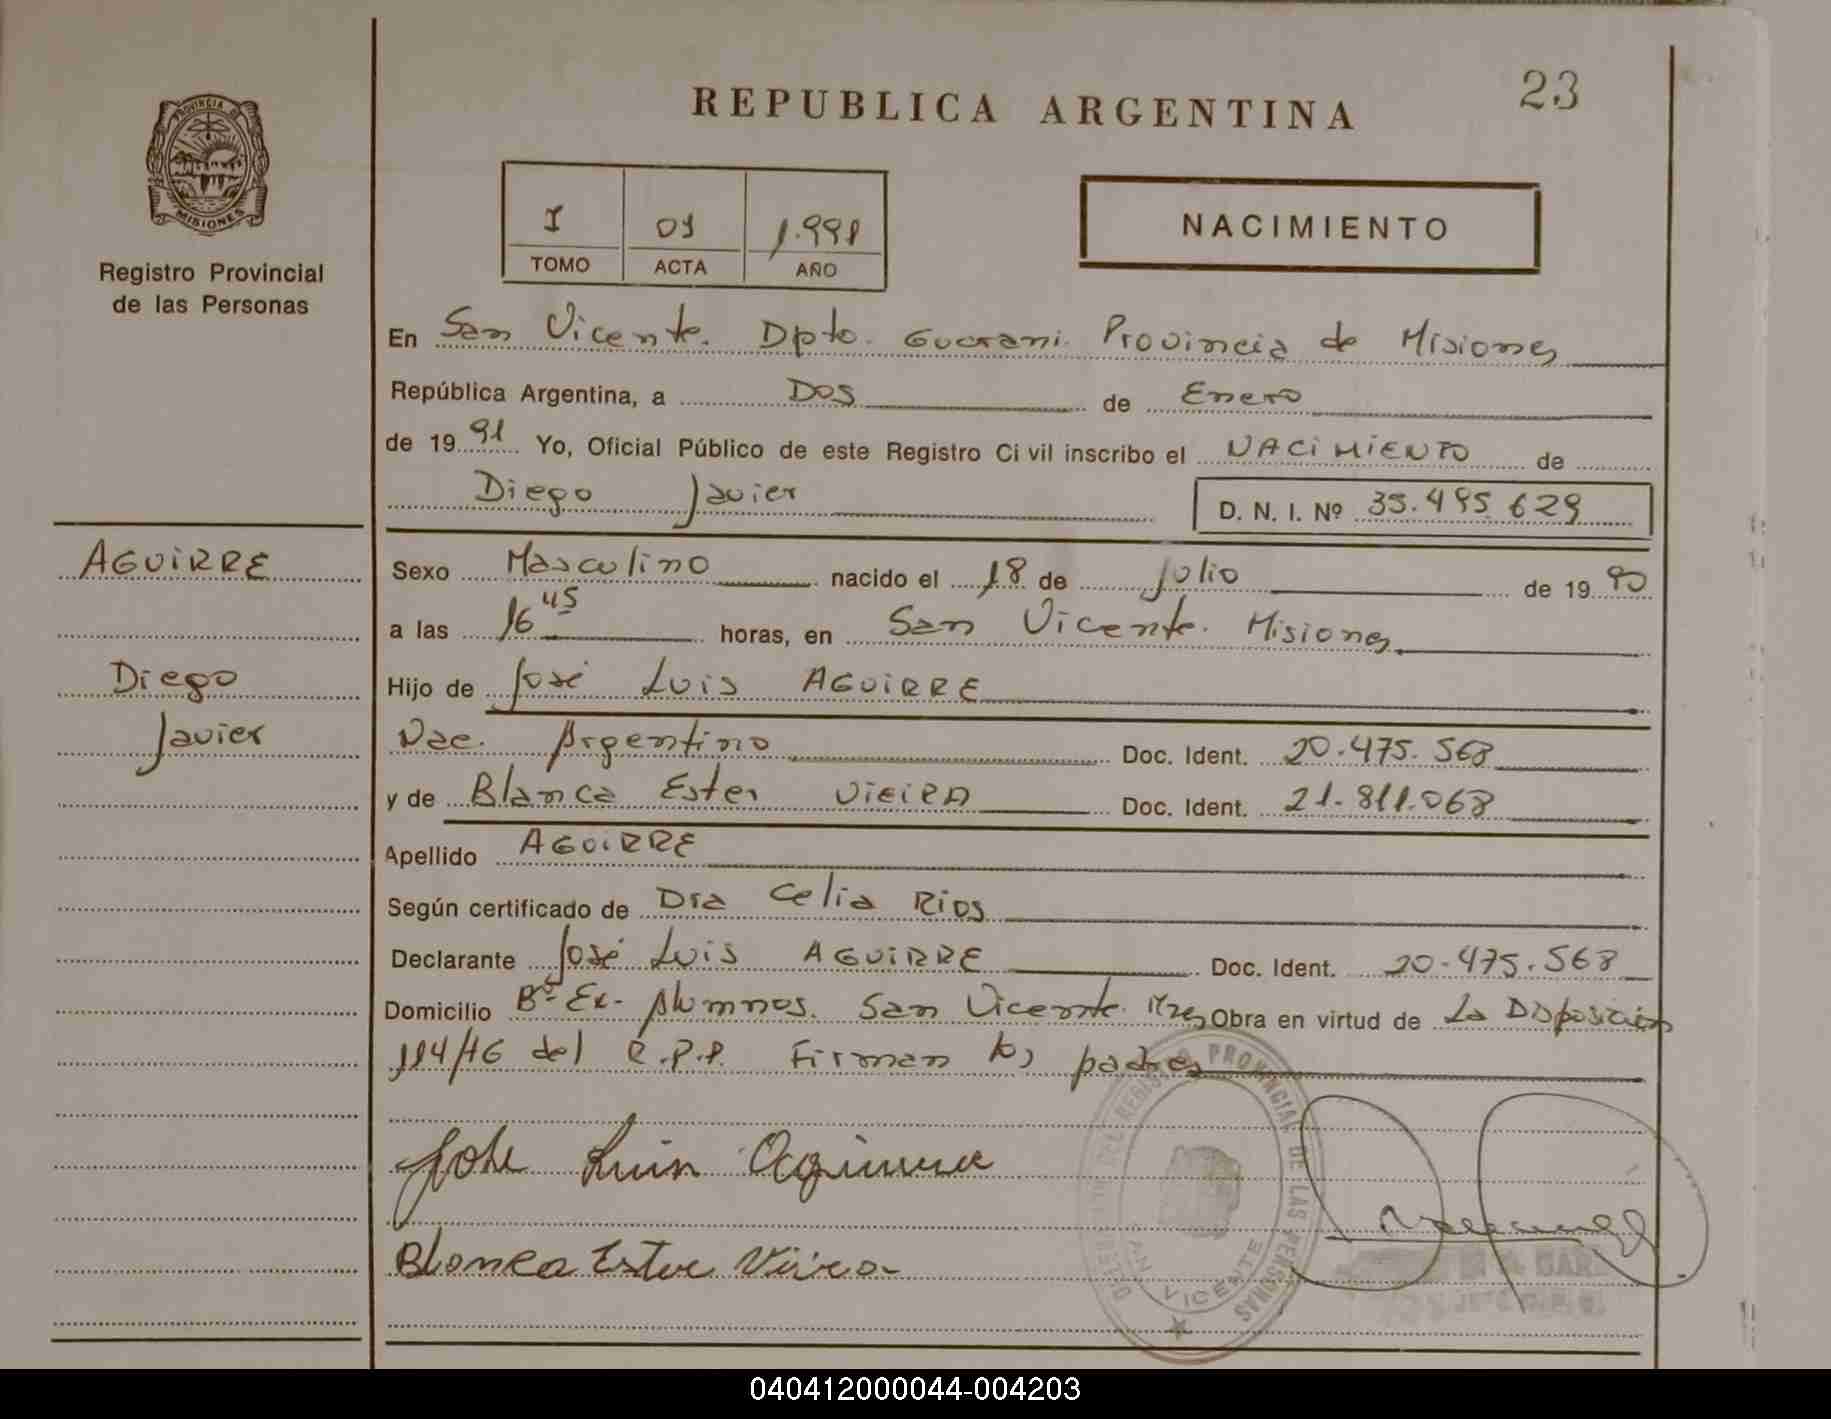 23
REPUBLICA ARGENTINA
PROVINCIA DE
MISIONES
Registro Provincial
de las Personas
I 01 1.991
TOMO ACTA AÑO
NACIMIENTO
En San Vicente. Dpto. Guarani. Provincia de Misiones
República Argentina, a Dos de Enero
de 1991 Yo, Oficial Público de este Registro Civil inscribo el NACIMIENTO de
Diego Javier D. N. I. Nº 35.495.629
AGUIRRE
Diego
Javier
Sexo Masculino nacido el 18 de Julio de 1990
a las 16 45 horas, en San Vicente. Misiones
Hijo de José Luis AGUIRRE
Nac. Argentino Doc. Ident. 20.475.568
y de Blanca Ester VIEIRA Doc. Ident. 21.811.068
Apellido AGUIRRE
Según certificado de Dra Celia Rios
Declarante José Luis AGUIRRE Doc. Ident. 20.475.568
Domicilio Bº Ex- Alumnos. San Vicente. Mnes Obra en virtud de La Disposicion
114/46 del R.P.P. Firman los padres
Jose Luis Aguirre
Blanca Ester Vieira
REGISTRO PROVINCIAL DE LAS PERSONAS
VICENTE
040412000044-004203